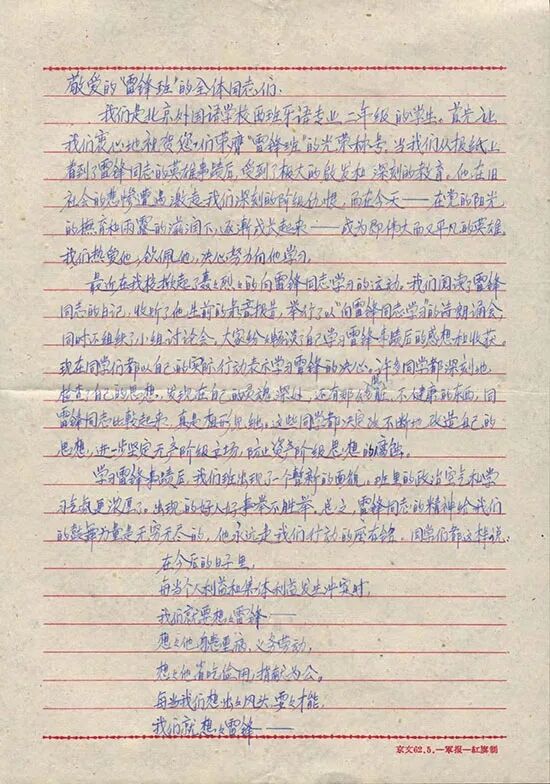 敬爱的“雷锋班”的全体同志们：
我们是北京外国语学校西班牙语专业二年级的学生。首先让
我们衷心地祝贺您们荣膺“雷锋班”的光荣称号，当我们从报纸上
看到了雷锋同志的英雄事迹后，受到了极大的启发和深刻的教育。他在旧
社会的悲惨遭遇激起我们深刻的阶级仇恨，而在今天——在党的阳光
的抚育和雨露的滋润下，逐渐成长起来——成为即伟大而又平凡的英雄。
我们热爱他，钦佩他，决心努力向他学习。
最近在我校掀起了轰轰烈烈的向雷锋同志学习的运动，我们阅读了雷锋
同志的日记，收听了他生前的录音报告，举行了以“向雷锋同志学习”的诗朗诵会
同时还组织了小组讨论会，大家纷纷畅谈了自己学习雷锋事迹后的感想和收获。
现在同学们都以自己的实际行动表示学习雷锋的决心。许多同学都深刻地
检查了自己的思想，发现在自己的灵魂深处，还有那肮脏、不健康的东西，同
雷锋同志比较起来，真是相形见绌。这些同学都决定改不断地改造自己的
思想，进一步坚定无产阶级立场，防止资产阶级思想的腐蚀。
学习雷锋事迹后，我们班出现了一个崭新的面貌，班里的政治空气和学
习空气更浓厚了。出现的好人好事举不胜举。总之，雷锋同志的精神给我们
的鼓舞力量是无穷无尽的，他永远是我们行动的座右铭，同学们都这样说：
在今后的日子里，
每当个人利益和集体利益发生冲突时，
我们就要想想雷锋——
想想他身患重病，义务劳动，
想想他省吃俭用，捐献为公。
每当我们想出出风头耍耍才能，
我们就想想雷锋——
京文62.5.—军报—红旗制